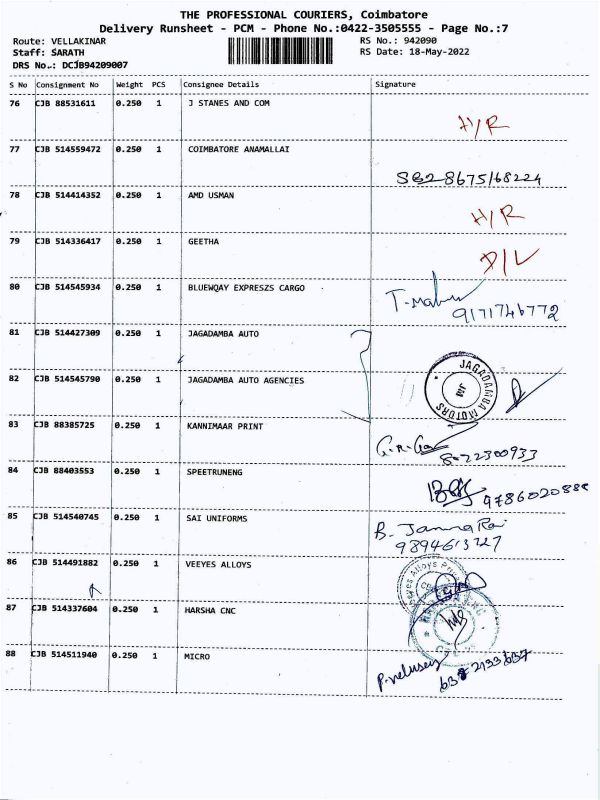 THE PROFESSIONAL COURIERS, Coimbatore
Delivery Runsheet - PCM - Phone No.:0422-3505555 - Page No.:7
Route: VELLAKINAR RS No.: 942090
Staff: SARATH RS Date: 18-May-2022
DRS No.: DCJB94209007
S No Consignment No Weight PCS Consignee Details Signature
76 CJB 88531611 0.250 1 J STANES AND COM
H/R
77 CJB 514559472 0.250 1 COIMBATORE ANAMALLAI
78 CJB 514414352 0.250 1 AMD USMAN
H/R
79 CJB 514336417 0.250 1 GEETHA
D/L
80 CJB 514545934 0.250 1 BLUEWQAY EXPRESZS CARGO
9171746772
81 CJB 514427309 0.250 1 JAGADAMBA AUTO
82 CJB 514545790 0.250 1 JAGADAMBA AUTO AGENCIES
JAGADAMBA MOTORS
83 CJB 88385725 0.250 1 KANNIMAAR PRINT
84 CJB 88403553 0.250 1 SPEETRUNENG
85 CJB 514540745 0.250 1 SAI UNIFORMS
86 CJB 514491882 0.250 1 VEEYES ALLOYS
87 CJB 514337604 0.250 1 HARSHA CNC
88 CJB 514511940 0.250 1 MICRO